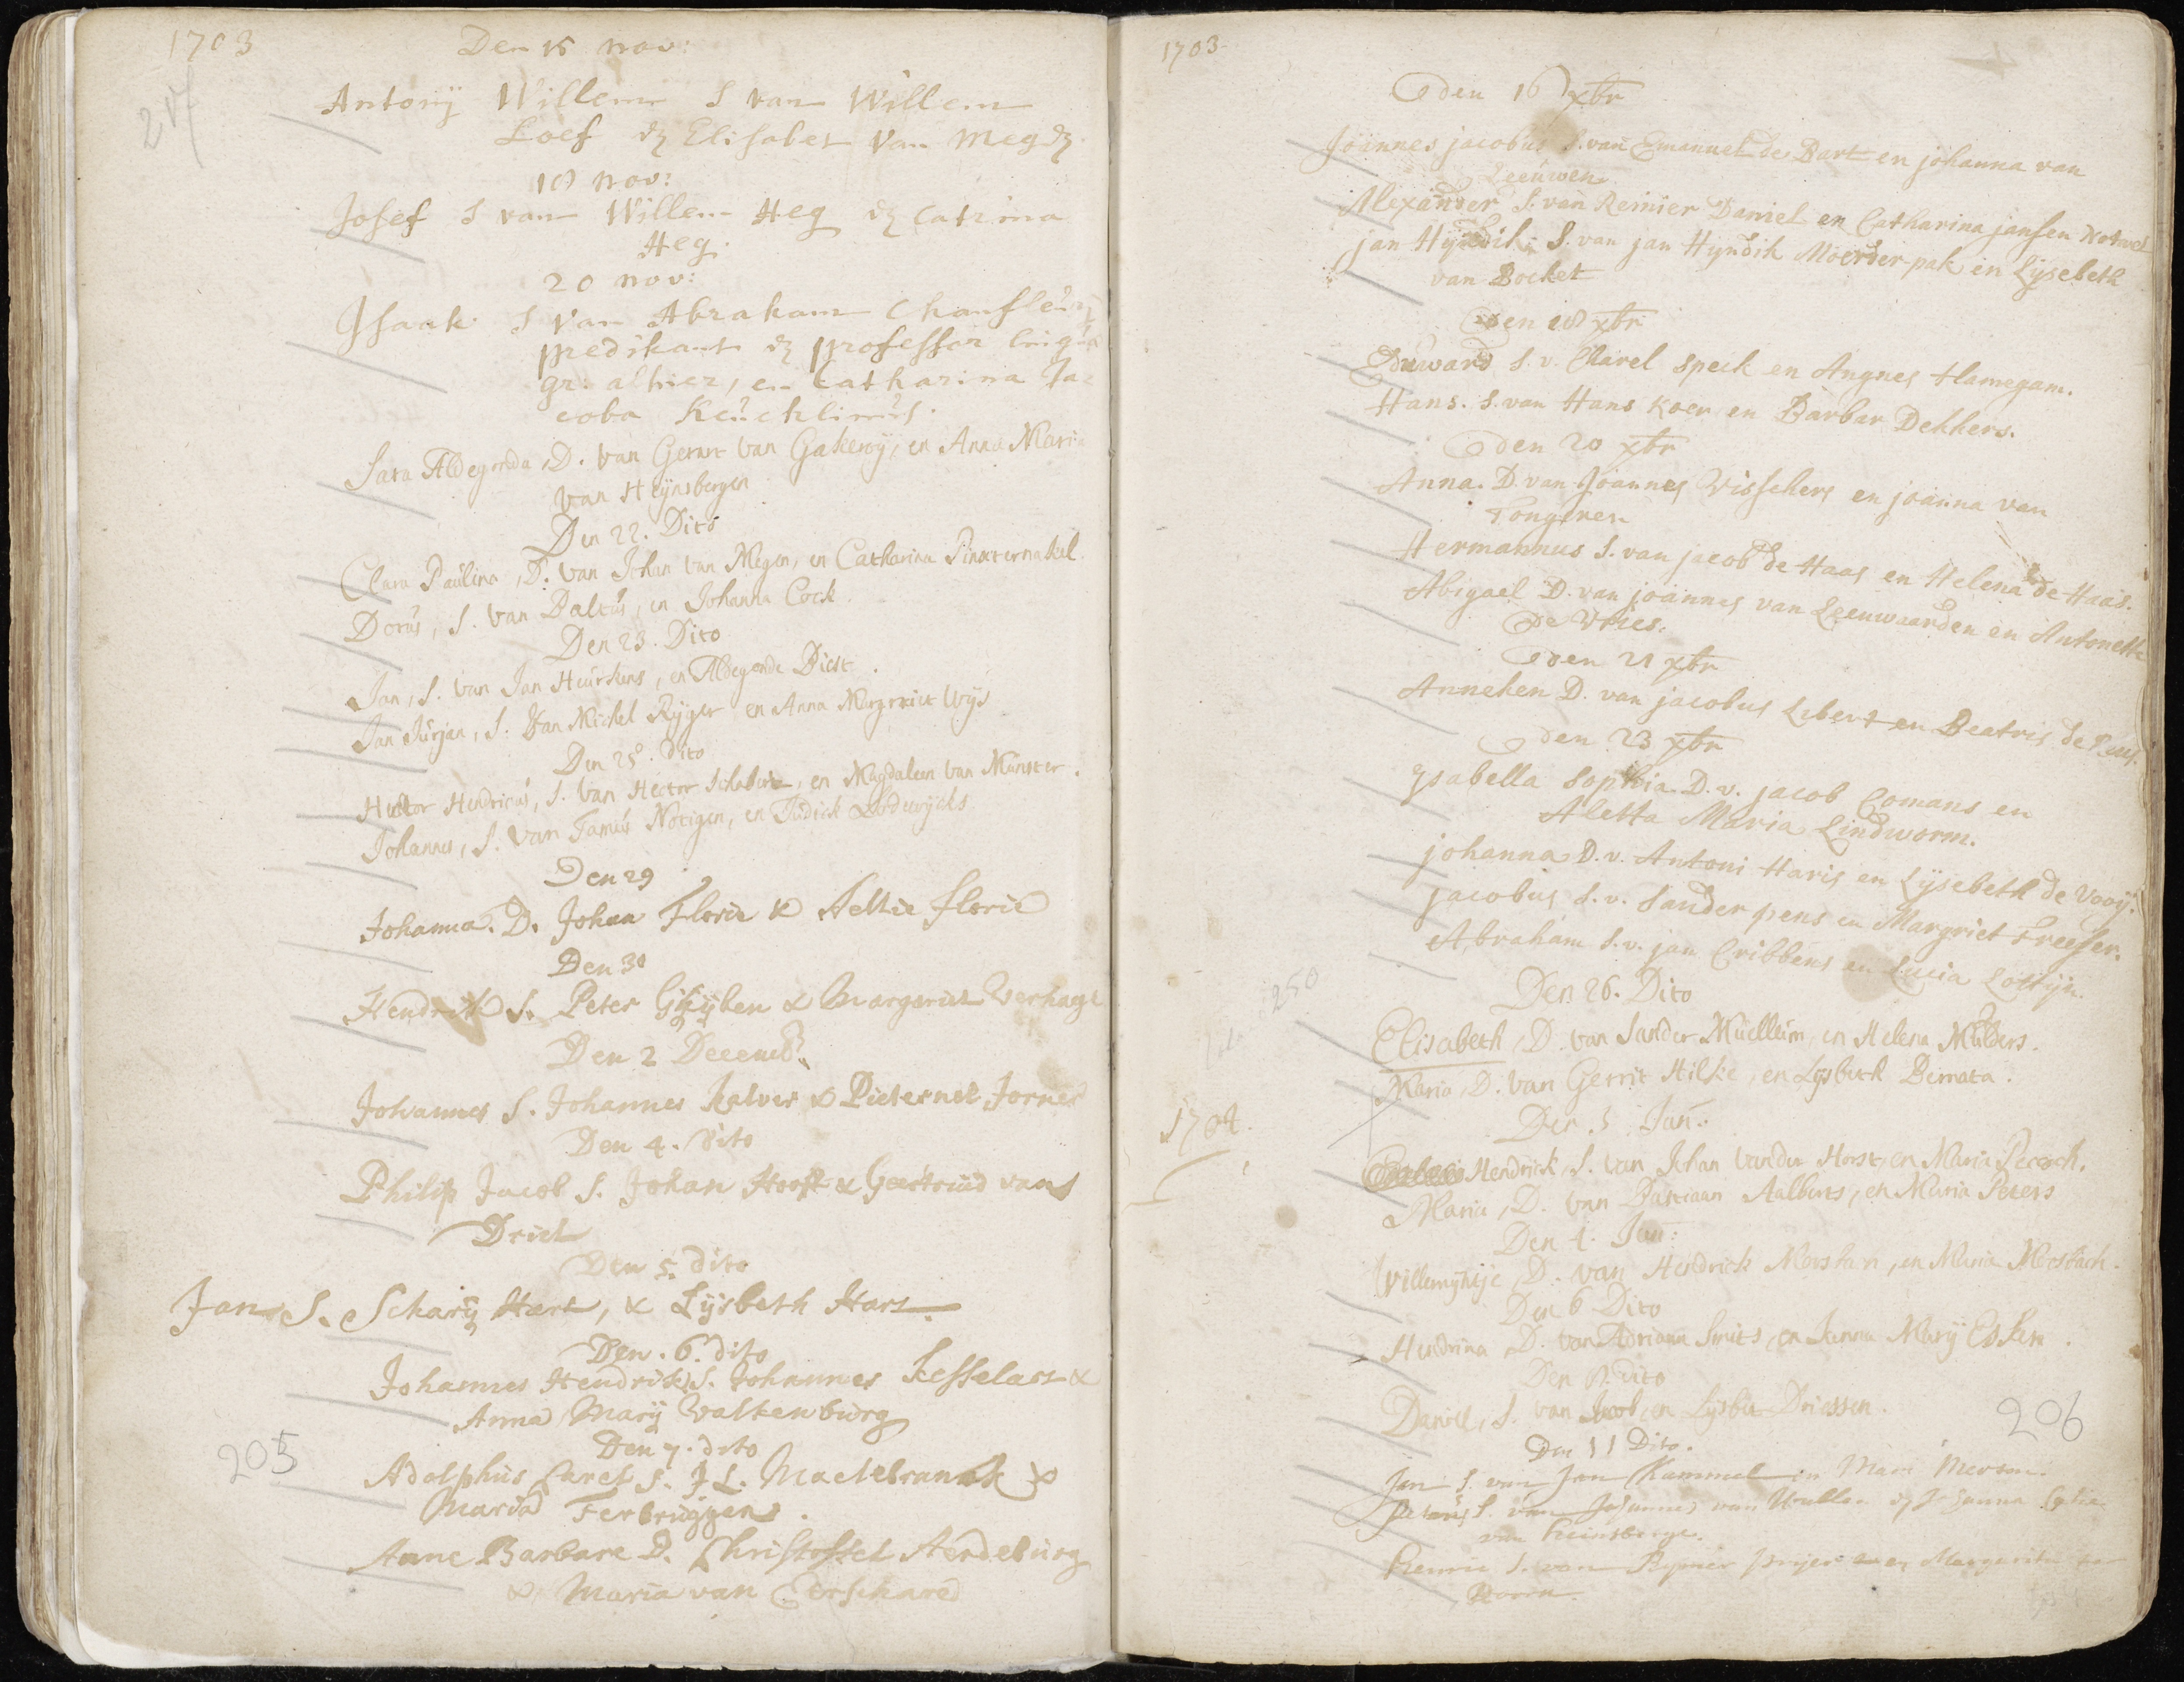 1703 Den 15 nov:
217
Antonÿ Willem S van Willem
Loef & Elisabet van Megz
18 nov:
Josef S van Willem Heg & Catrina
Heg.
20 nov:
Isaak S van Abraham
predikant & professor
gr: alhier, en Catharina Ja=
coba Keuchlinus.
Sara Aldegonda, D. van Gerart van Gakenoÿ, en Anna Maria
van Heÿnsbergen
Den 22. Dito
Clara Paulina, D. van Johan van Megen, en Catharina Pinxternakel
Dorus, S. van Baltus, en Johanna Cock.
Den 23. Dito
Jan, S. van Jan Heurkens, en Aldegonde Diest.
Jan Jurjan, S. van Michel Rÿger en Anna Margrriet Wÿs
Den 25. Dito
Hector Hendricus, S. van Hector, en Magdaleen van Munster.
Johannes, S. van Tamus Notigen, en Judick Lodewÿcks.
Den 29
Johanna. D. Johan Florie & Aeltie florie
Den 30
Hendrik S. Peter Ghÿben & Margariet Verhage
Den 2 Decemb.
Johannes S. Johannes Kalver & Pieternel Jorner
Den 4. dito
Philip Jacob S. Johan Hooft & Geertruid van
Driel
Den 5. dito
Jan S. Scharÿ Hart, & Lÿsbeth Hart.
Den. 6. dito
Johannes Hendrik S. Johannes Kesselaer &
Anna Marÿ Valkenburg
Den 7. dito
205
Adolphus Carel S. J L. Maelebranck &
Maria Terbruggen.
Anne Barbare D. Christoffel Aerdeburg
& Maria van Cerschared
1703
den 16 xbr
Joannes jacobus S. van Emanuel de Bart en johanna van
Leeuwen
Alexander S. van Reinier Daniel en Catharina jansen
jan Hÿndik S. van jan Hÿndik Moerderpak en Lÿsebeth
van Bocket
den 18 xbr
Eduward S. v. Karel Speck en Angnes Hamegam.
Hans. S. van Hans Koer en Barbar Dekkers.
den 20 xbr
Anna. D. van Joannes Visschers en joanna van
Tongeren
Hermannus S. van jacob de Haas en Helena de Haas.
Abigael D. van joannes van Leeuwaarden en Antonette
de Vries.
den 21 xbr
Anneken D. van jacobus Libert en Beatris de Puis.
den 23 xbr
Ysabella Sophia D. v. jacob Comans en
Aletta Maria Lindworm.
johanna D. v. Antoni Haris en Lÿsebeth de Vooÿ.
jacobus S. v. Sander pens en Margriet Freeser.
Abraham S. v. jan Cribbens en Lucia Lottijn.
250
Den 26. Dito
Elisabeth, D. van Sander Muelleum, en Helena Mulders.
Maria, D. van Gerrit Hilkie, en Lÿsbeth Bemata.
1704.
Den. 3 Jan:
Hendrick, S. van Johan vander Horst, en Maria Pecoch.
Maria, D. van Bastiaan Aalberts, en Maria Peters
Den 4. Jan:
Willemÿntje, D. van Hendrick, en Maria
Den 6 Dito
Hendrina D. van Adriaan Smits, en Janna Marÿ Esken.
Den dito
Daniel, S. van Jacob, en Lÿsbet Driessen.
206
Den 11 Dito.
Jan S. van Jan Kummel en Mari Merson.
Petrus S. van Johannes van Wullen & Johanna
van Heinsberge.
Henric S. van Rÿnier en Margarita van
Doorn.